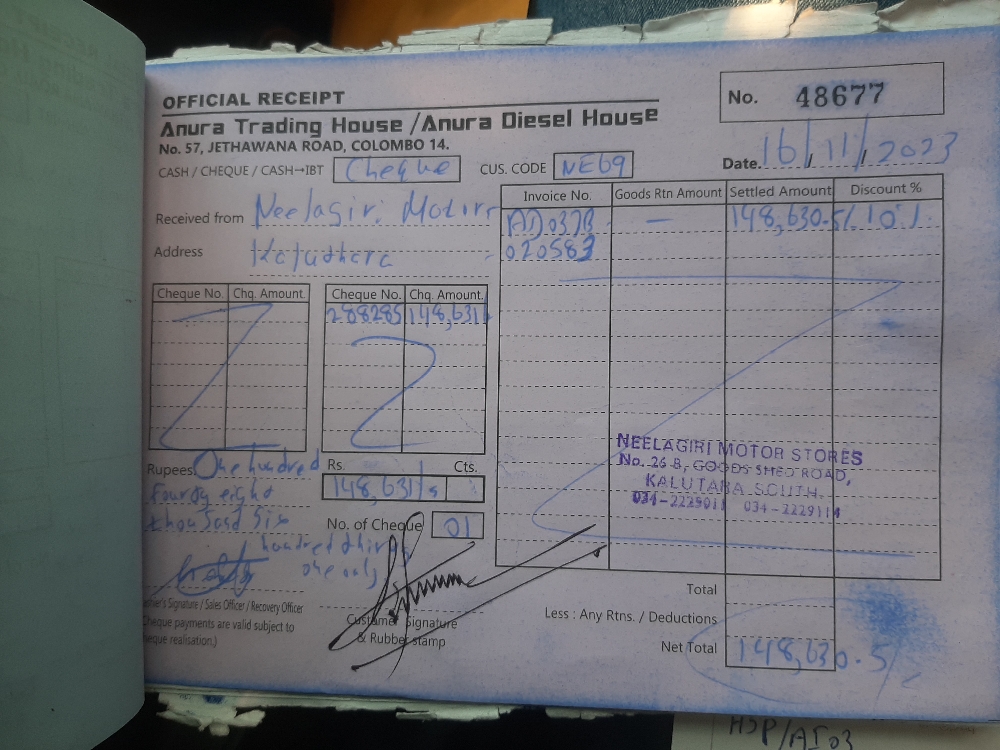 OFFICIAL RECEIPT
No. 48677
Anura Trading House / Anura Diesel House
No. 57, JETHAWANA ROAD, COLOMBO 14.
Date. 16/11/2023
CASH / CHEQUE / CASH→IBT Cheque CUS. CODE NE69
Invoice No. Goods Rtn Amount Settled Amount Discount %
Received from Neelagiri Motors
AD037B — 148,630.5/ 10%
020583
Address
Cheque No. Chq. Amount. Cheque No. Chq. Amount.
288285 148,631/
NEELAGIRI MOTOR STORES
No. 26 B, GOODS SHED ROAD,
KALUTARA SOUTH.
034-2229011 034-2229114
Rupees One hundred
Fourty eight
thousand six
hundred thirty
one only
Rs. Cts.
148,631/
No. of Cheque 01
Total
Less : Any Rtns. / Deductions
Net Total 148,630.5/
Signature / Sales Officer / Recovery Officer
Cheque payments are valid subject to
cheque realisation.)
Customer Signature
& Rubber stamp